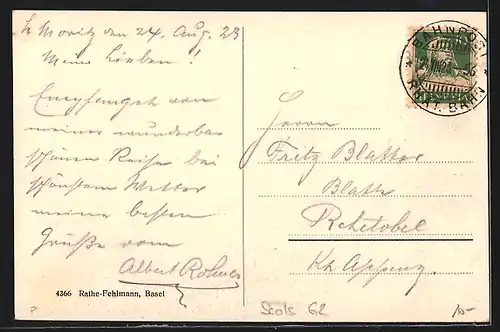 St Moritz den 24. Aug. 23
Meine Lieben!
Empfanget von
meiner wunderbar
schönen Reise bei
schönstem Wetter
meine besten
Grüße vom
Albert Rohner
4366 Rathe-Fehlmann, Basel
BAHNPOST
RHÄT. BAHN
Herrn
Fritz Blatter
Blatt
Rehetobel
Kt. Appenz.
Scols 62